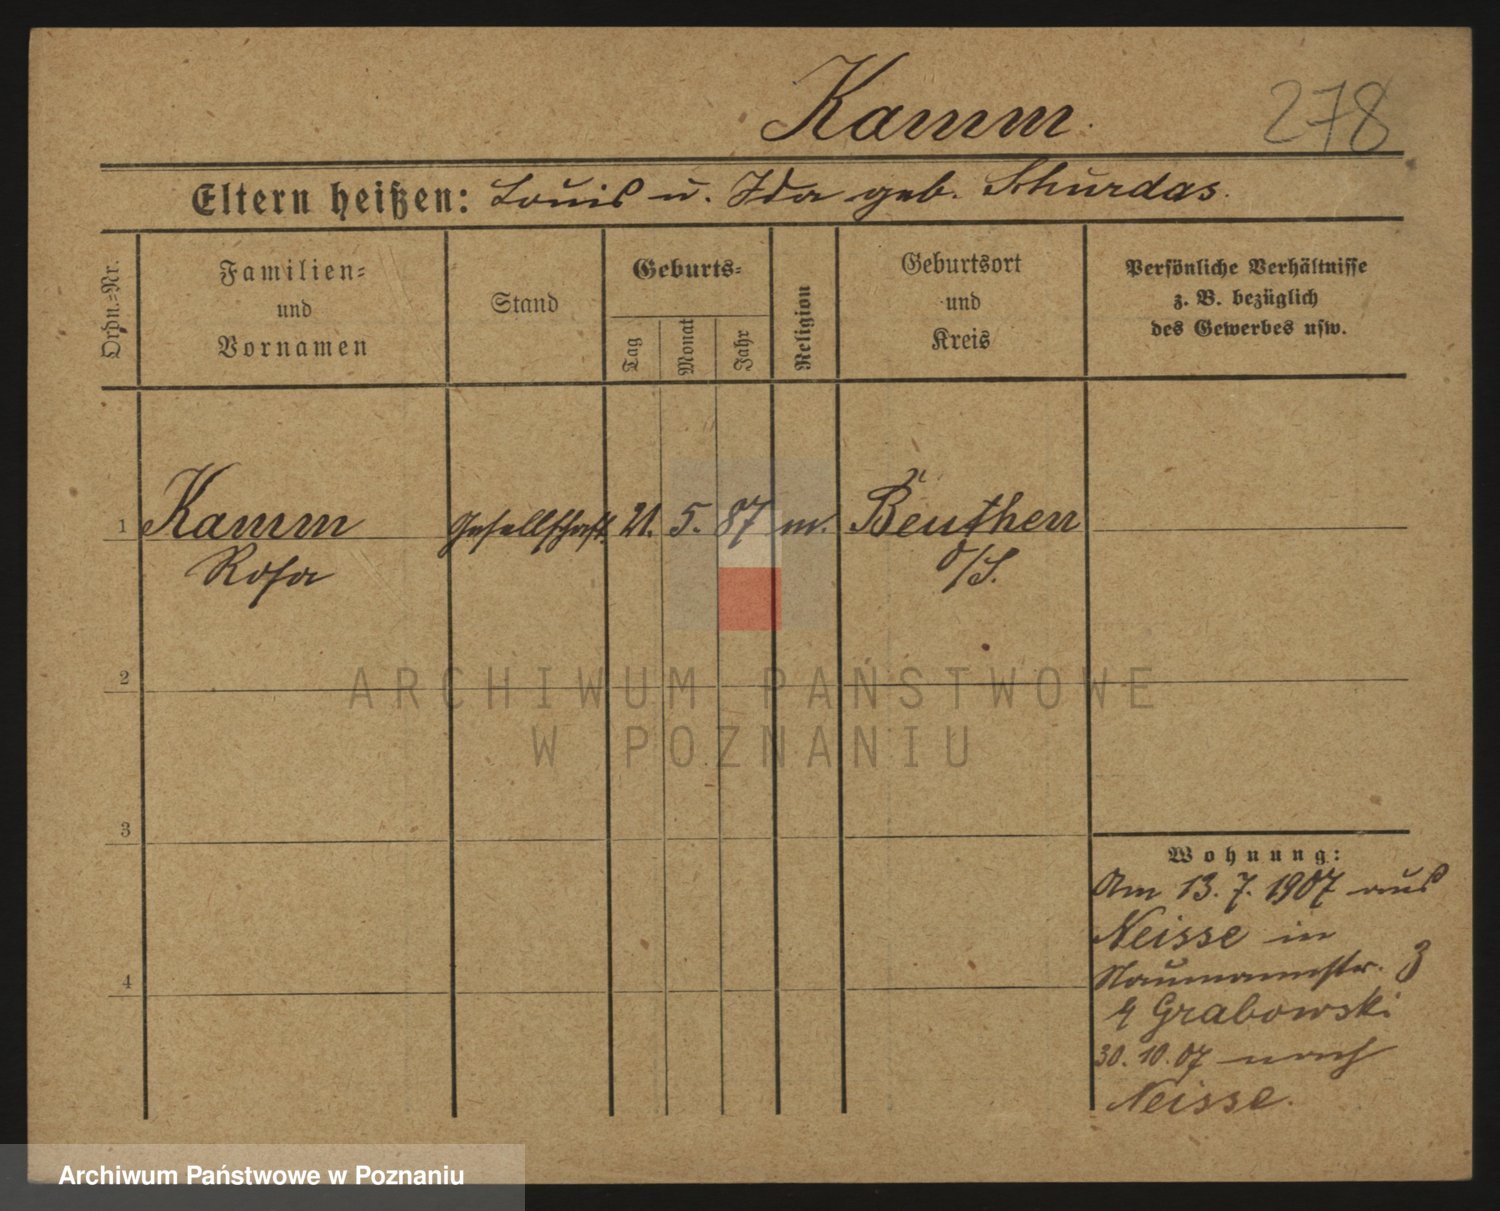 Kamm.
278
Eltern heißen: Louis u. Ida geb. Schurdas.
Ordn.=Nr.
Familien=
und
Vornamen
Stand
Geburts=
Tag
Monat
Jahr
Religion
Geburtsort
und
Kreis
Persönliche Verhältnisse
z. B. bezüglich
des Gewerbes usw.
1 Kamm Gesellschaft. 21. 5. 87 m. Beuthen
Rosa O/S.
2
3
4
Wohnung:
Am 13. 7. 1907 aus
Neisse in
Naumannstr. 3
Grabowski
30. 10. 07 nach
Neisse.
ARCHIWUM PAŃSTWOWE
W POZNANIU
Archiwum Państwowe w Poznaniu